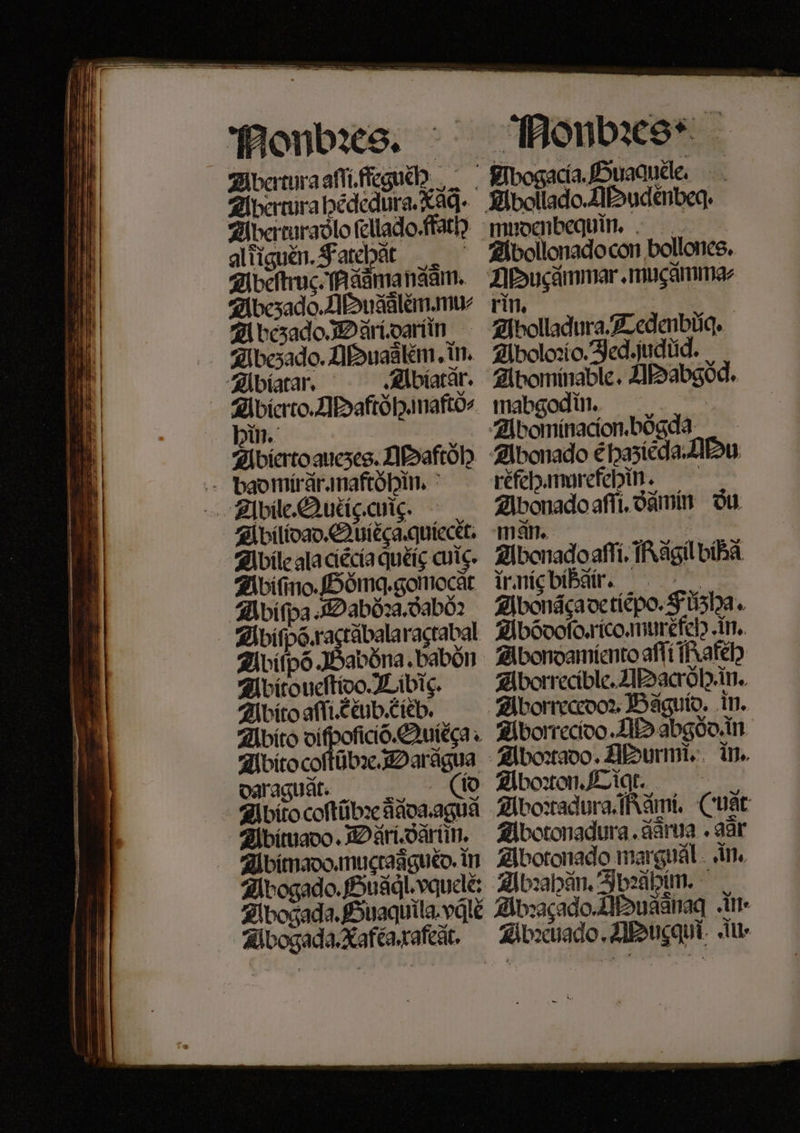 Nonbres.
Abertura assi. ffeguêh
Abertura hêdedura. Xâq.
Abertura d̃lo sellado. ffath
alsiguên. Fatehât
Abestruç. Nââmanââm.
Abezado. Muââlêm. mu-
Abezado. Dâri. darîin
Abezado. Muaâlêm. în.
Abiatar. Abiatâr.
Abierto. Mastôh. mastô-
hin.
Abierto a uezes. Mastôh
baomirâr. mastôhin.
Abile. Quêiç. cuiç.
Abilidad. Quiêça. quiecêt.
Abile ala ciêcia quêiç cuiç.
Abismo. Gômq. gomocât
Abispa. Dabôra. dabôr
Abispô. ractâbala ractabal
Abispô. Babôna. babôn
Abito uestido. Libîç.
Abito assi. têub. tiêb.
Abito disposiciõ. Quiêça.
Abito costûbre. Darâgua
daraguât. (io
Abito costûbre ââda. aguâ
Abituado. Dâri. dârîin.
Abitmado. muctaâguêd. in
Abogado. Guâql. vquelê:
Abogada. Guaquila. vqlê
Abogada. Xafêa. xafeât.
Nonbres.
Abogacia. Guaquêle.
Abollado. Mudênbeq.
mudenbequîn.
Abollonado con bollones.
Muçâmmar. muçâmma-
rîn.
Abolladura. Tedenbîiq.
Abolorio. Jed. judûd.
Abominable. Mabgôd.
mabgodîn.
Abominacion. bôgda
Abonado ê hazieda. Mu
rêfeh. murefehîn.
Abonado assi. dâmin du
mân.
Abonado assi. Râgil bihâ
ir. niç bihâir.
Abonâça de tiêpo. Fûsha.
Abõdoso. rico. murêfeh. în.
Abondamiento assi Rafêh
Aborrecible. Macrôh. în.
Aborrecedor. Bâguid. în.
Aborrecido. Mabgôd. în
Abortado. Murmi. în.
Aborton. Ciqt.
Abortadura. Râmi. (uât
Abotonadura. âârua. aâr
Abotonado marguâl. în.
Abrahân. Ibrâhim.
Abraçado. Muâânaq. în-
Abreuado. Muçqui. în-